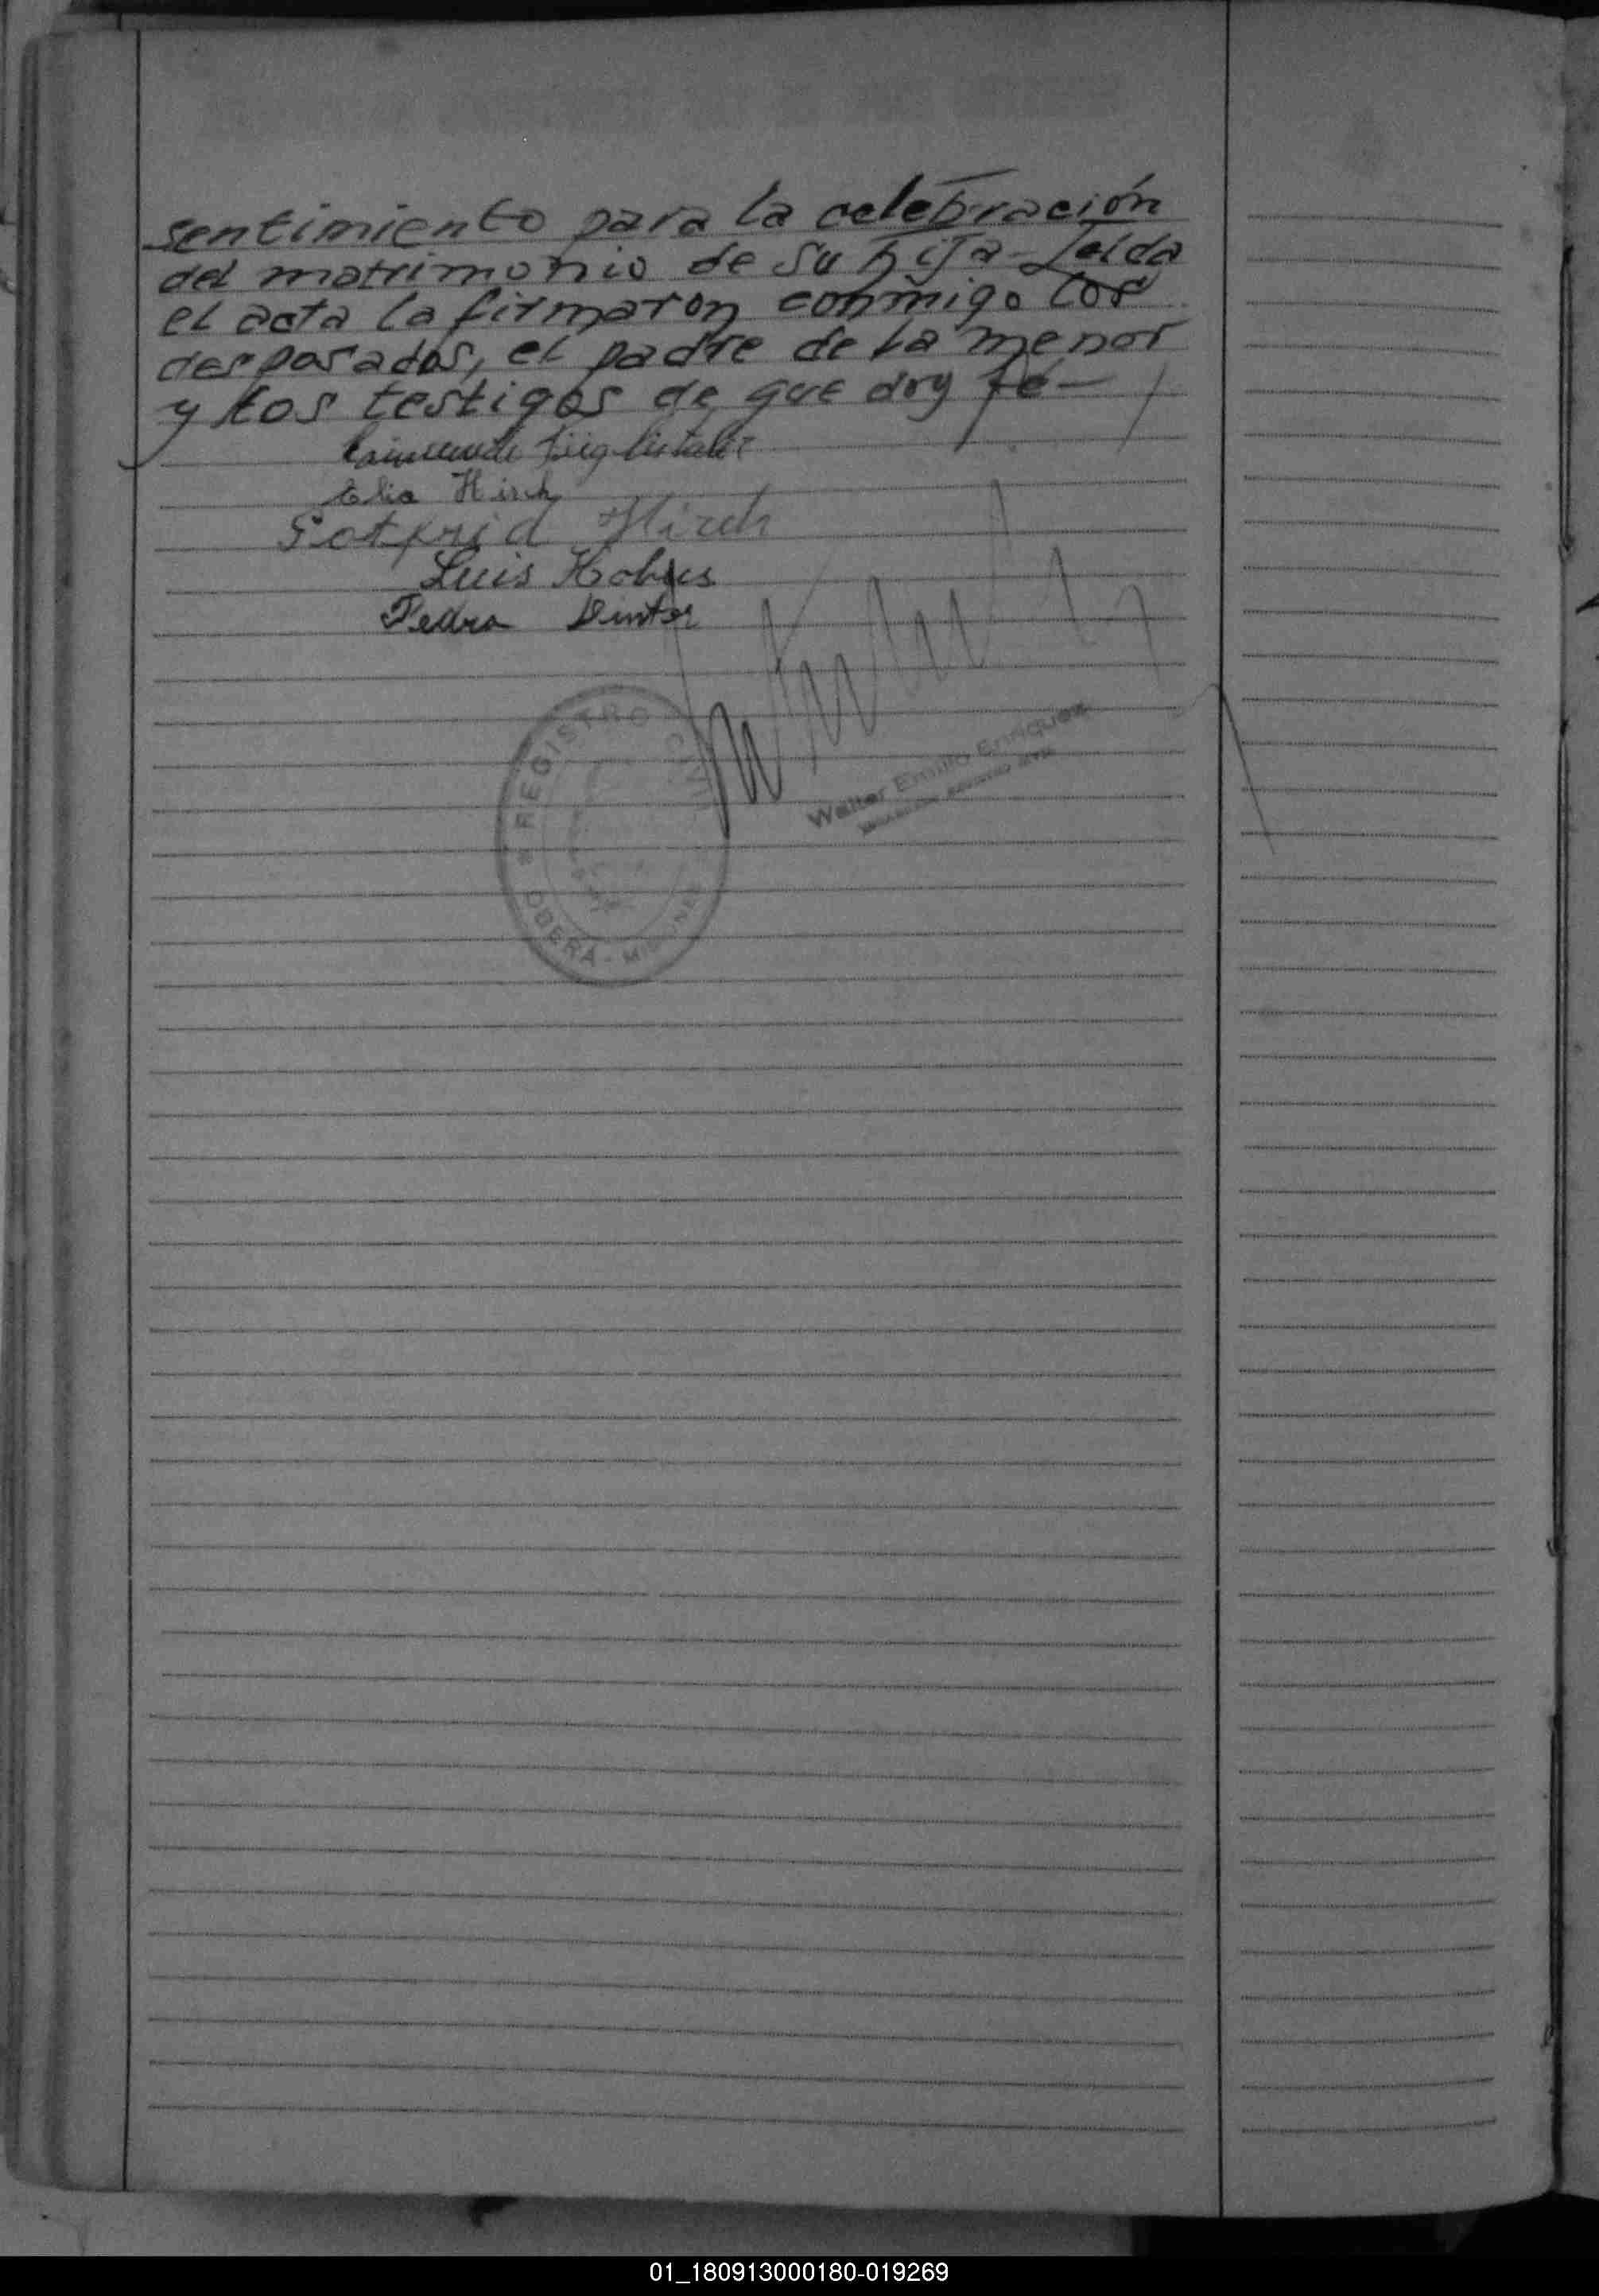 sentimiento para la celebración
del matrimonio de su hija - Leída
el acta la firmaron conmigo los
desposados, el padre de la menor
y los testigos de que doy fé -
Elia Hirch
Gotfrid Hirch
Luis Kohus
Pedro Dintor
REGISTRO CIVIL
OBERÁ - MISIONES
Walter Emilio Enriquez
01_180913000180-019269